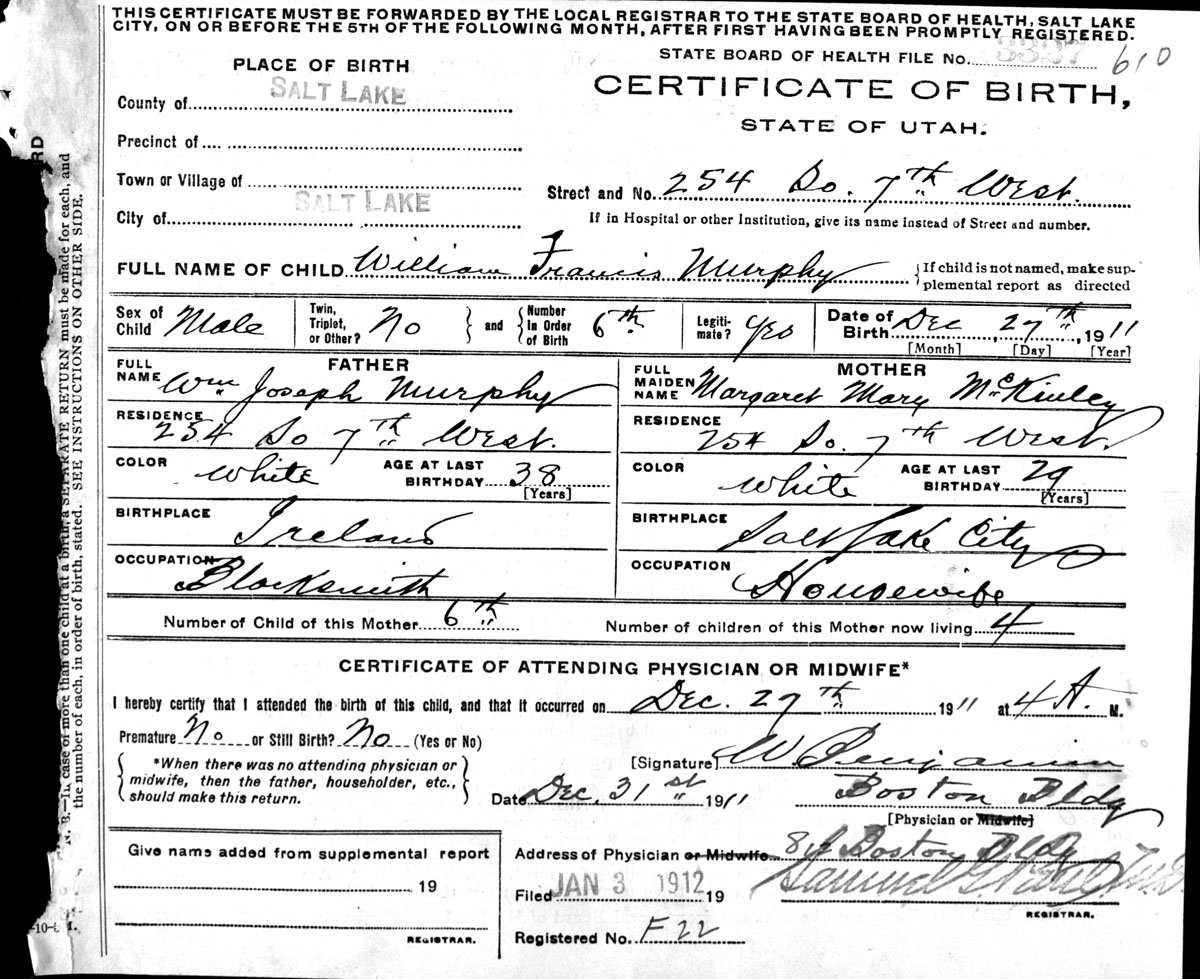 THIS CERTIFICATE MUST BE FORWARDED BY THE LOCAL REGISTRAR TO THE STATE BOARD OF HEALTH, SALT LAKE
CITY, ON OR BEFORE THE 5TH OF THE FOLLOWING MONTH, AFTER FIRST HAVING BEEN PROMPTLY REGISTERED.
STATE BOARD OF HEALTH FILE No. 3327 610
PLACE OF BIRTH
CERTIFICATE OF BIRTH,
STATE OF UTAH.
County of SALT LAKE
Precinct of
Town or Village of
City of SALT LAKE
Street and No. 254 So. 7th West.
If in Hospital or other Institution, give its name instead of Street and number.
FULL NAME OF CHILD William Francis Murphy
If child is not named, make sup-
plemental report as directed
Sex of Child Male
Twin, Triplet, or Other? No
and Number In Order of Birth 6th
Legiti-mate? Yes
Date of Birth Dec 27th, 1911
[Month] [Day] [Year]
FATHER
FULL NAME Wm Joseph Murphy
RESIDENCE 254 So 7th West.
COLOR White AGE AT LAST BIRTHDAY 38 [Years]
BIRTHPLACE Ireland
OCCUPATION Blacksmith
MOTHER
FULL MAIDEN NAME Margaret Mary McKinley
RESIDENCE 254 So. 7th West.
COLOR White AGE AT LAST BIRTHDAY 29 [Years]
BIRTHPLACE Salt Lake City
OCCUPATION Housewife
Number of Child of this Mother 6th Number of children of this Mother now living 4
CERTIFICATE OF ATTENDING PHYSICIAN OR MIDWIFE*
I hereby certify that I attended the birth of this child, and that it occurred on Dec. 27th 1911 at 4 A. M.
Premature No or Still Birth? No (Yes or No)
*When there was no attending physician or
midwife, then the father, householder, etc.,
should make this return.
[Signature] W. Benjamin
Date Dec. 31st 1911 Boston Bldg
[Physician or Midwife]
Give name added from supplemental report
19
REGISTRAR.
Address of Physician or Midwife Boston Bldg
Filed JAN 3 1912 19
Samuel G.
REGISTRAR.
Registered No. F 22
N. B.—In case of more than one child at a birth, a SEPARATE RETURN must be made for each, and
the number of each, in order of birth, stated. SEE INSTRUCTIONS ON OTHER SIDE.